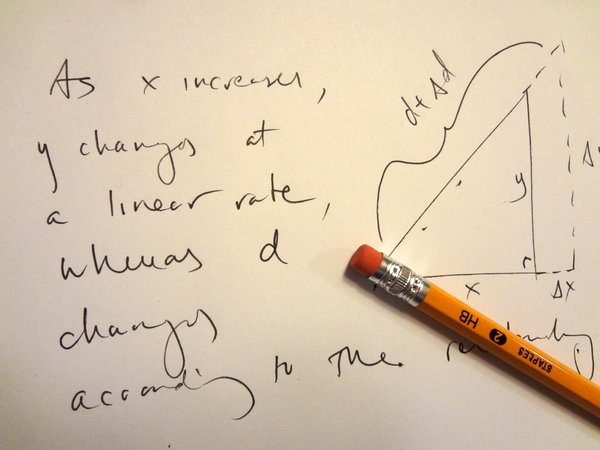 As x increases,
y changes at
a linear rate,
whereas d
changes
according to the
d + Δd
y
x
Δx
STAPLES 2 HB